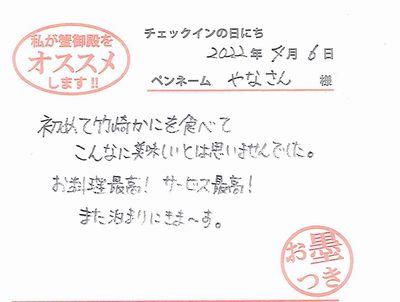 私が蟹御殿を
オススメ
します!!
チェックインの日にち
2022年 8月 6日
ペンネーム やなさん 様
初めて竹崎かにを食べて
こんなに美味しいとは思いませんでした。
お料理最高! サービス最高!
また泊まりにきま〜す。
お墨
つき